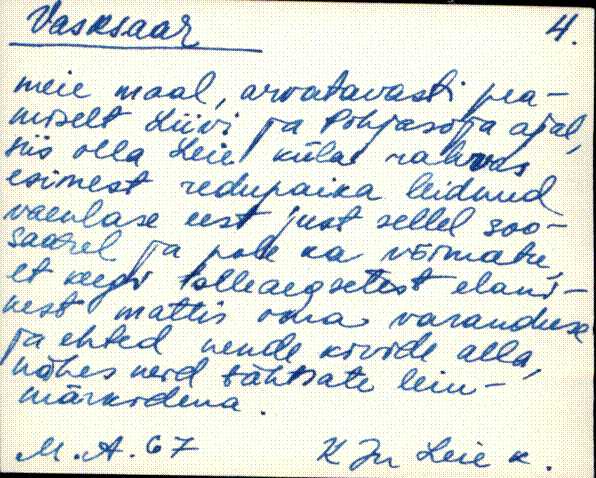 Vasksaar
4.
meie maal, arvatavasti pea-
miselt Liivi ja Põhjasõja ajal,
siis olla Leie küla rahvas
esimest redupaika leidnud
vaenlase eest just sellel soo-
saarel ja pole ka võimatu,
et keegi tolleaegsetest elani-
kest mattis oma varanduse
ja ehted nende kivide alla,
nähes neid tähtsate leiu-
märkidena.
M. A. 67
K Jn Leie k.